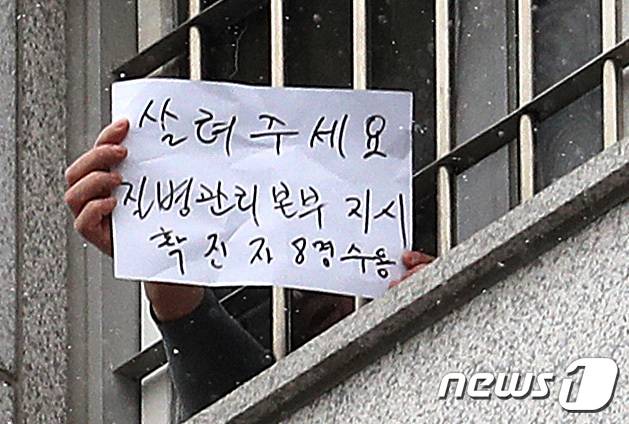 살려주세요
질병관리본부 지시
확진자 8경 수용
news1